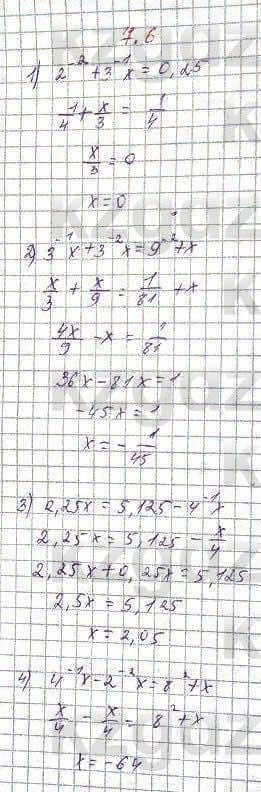 7.6
1) 2^{-2} + 3^{-1}x = 0,25
1/4 + x/3 = 1/4
x/3 = 0
x = 0
2) 3^{-1}x + 3^{-2}x = 9^{-2} + x
x/3 + x/9 = 1/81 + x
4x/9 - x = 1/81
36x - 81x = 1
-45x = 1
x = - 1/45
3) 2,25x = 5,125 - 4^{-1}x
2,25x = 5,125 - x/4
2,25x + 0,25x = 5,125
2,5x = 5,125
x = 2,05
4) 4^{-1}x - 2^{-2}x = 8^{2} + x
x/4 - x/4 = 8^{2} + x
x = -64